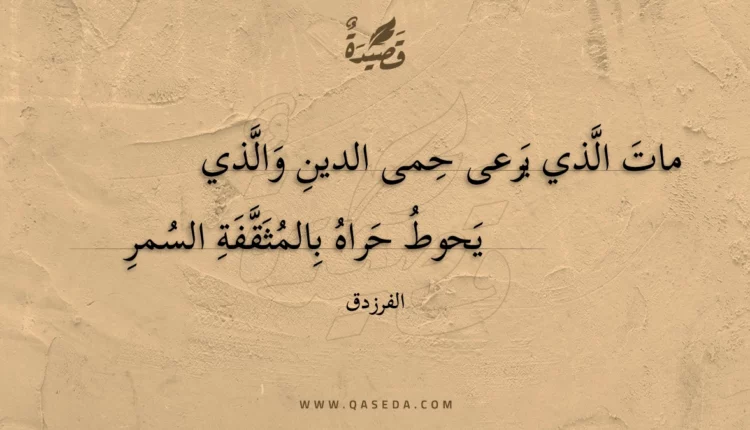 قَصِيدَةٌ
ماتَ الَّذي يَرعى حِمى الدينِ وَالَّذي
يَحوطُ حَراهُ بِالمُثَقَّفَةِ السُمرِ
الفرزدق
WWW.QASEDA.COM